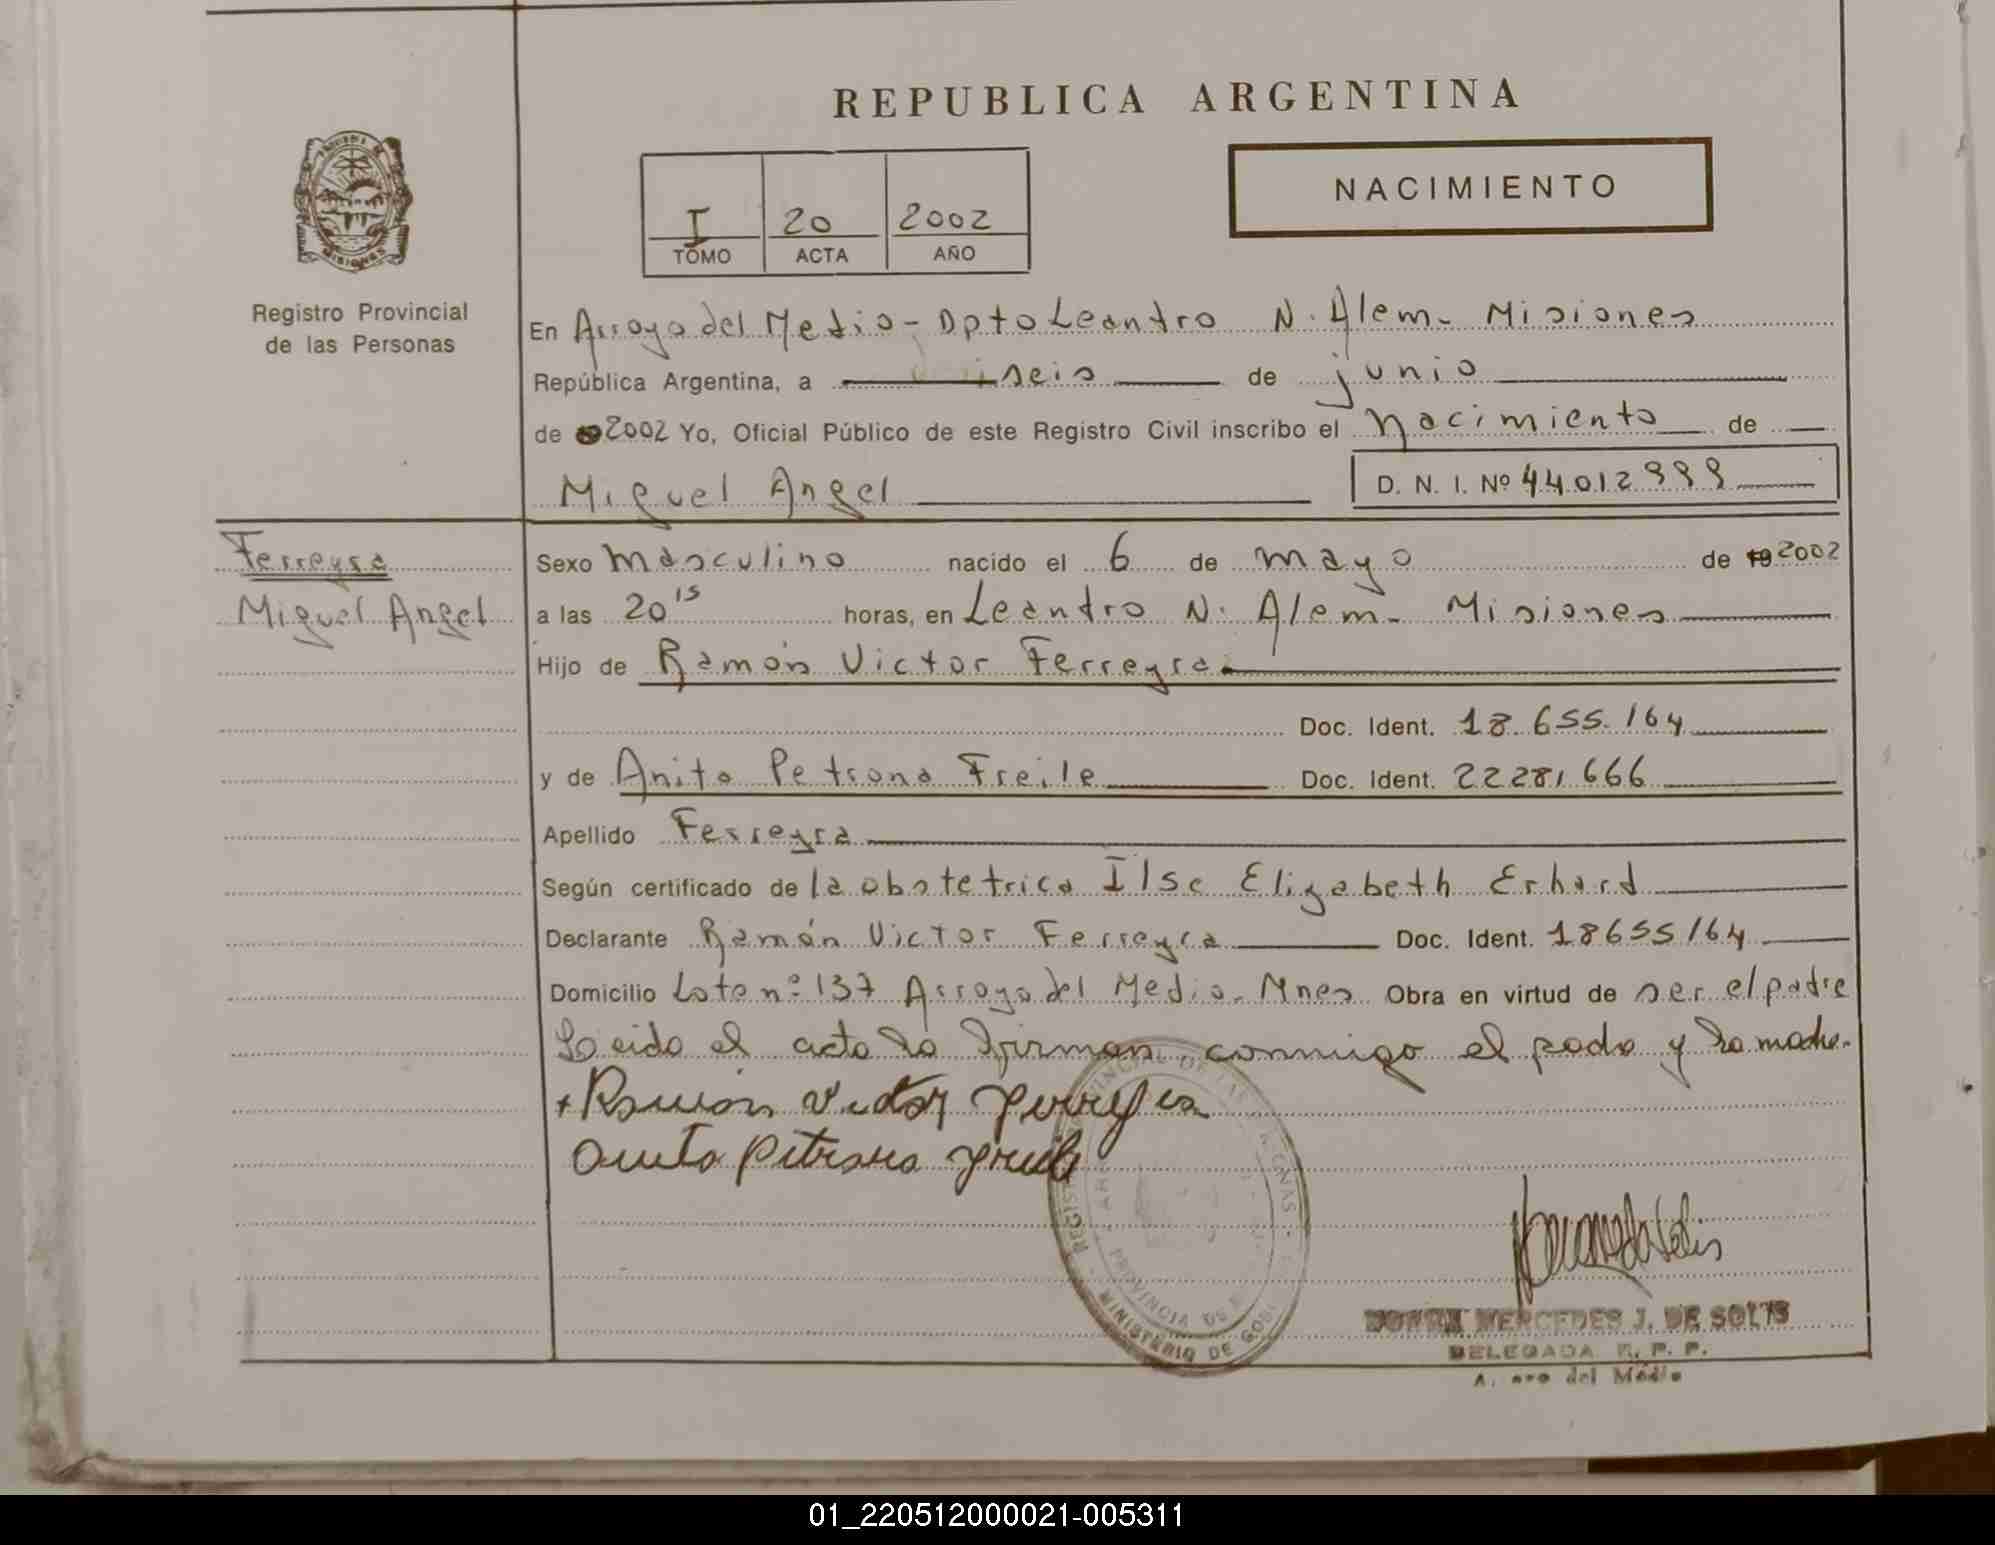 REPUBLICA ARGENTINA
NACIMIENTO
I 20 2002
TOMO ACTA AÑO
MISIONES
Registro Provincial
de las Personas
En Arroyo del Medio - Dpto Leandro N. Alem - Misiones
República Argentina, a seis de junio
de 2002 Yo, Oficial Público de este Registro Civil inscribo el nacimiento de
Miguel Angel D. N. I. Nº 44012999
Ferreyra
Miguel Angel
Sexo masculino nacido el 6 de mayo de 19 2002
a las 20 15 horas, en Leandro N. Alem - Misiones
Hijo de Ramón Victor Ferreyra
Doc. Ident. 18.655.164
y de Anita Petrona Freile Doc. Ident. 22281666
Apellido Ferreyra
Según certificado de la obstetrica Ilse Elizabeth Erhard
Declarante Ramón Victor Ferreyra Doc. Ident. 18655164
Domicilio Lote nº 137 Arroyo del Medio - Mnes Obra en virtud de ser el padre
Leido el acta la firman conmigo el padre y la madre.
+ Ramón Victor Ferreyra
Anita Petrona Freile
MINISTERIO DE GOB
PROVINCIA DE
MERCEDES J. DE SOLIS
DELEGADA R. P. P.
del Medio
01_220512000021-005311